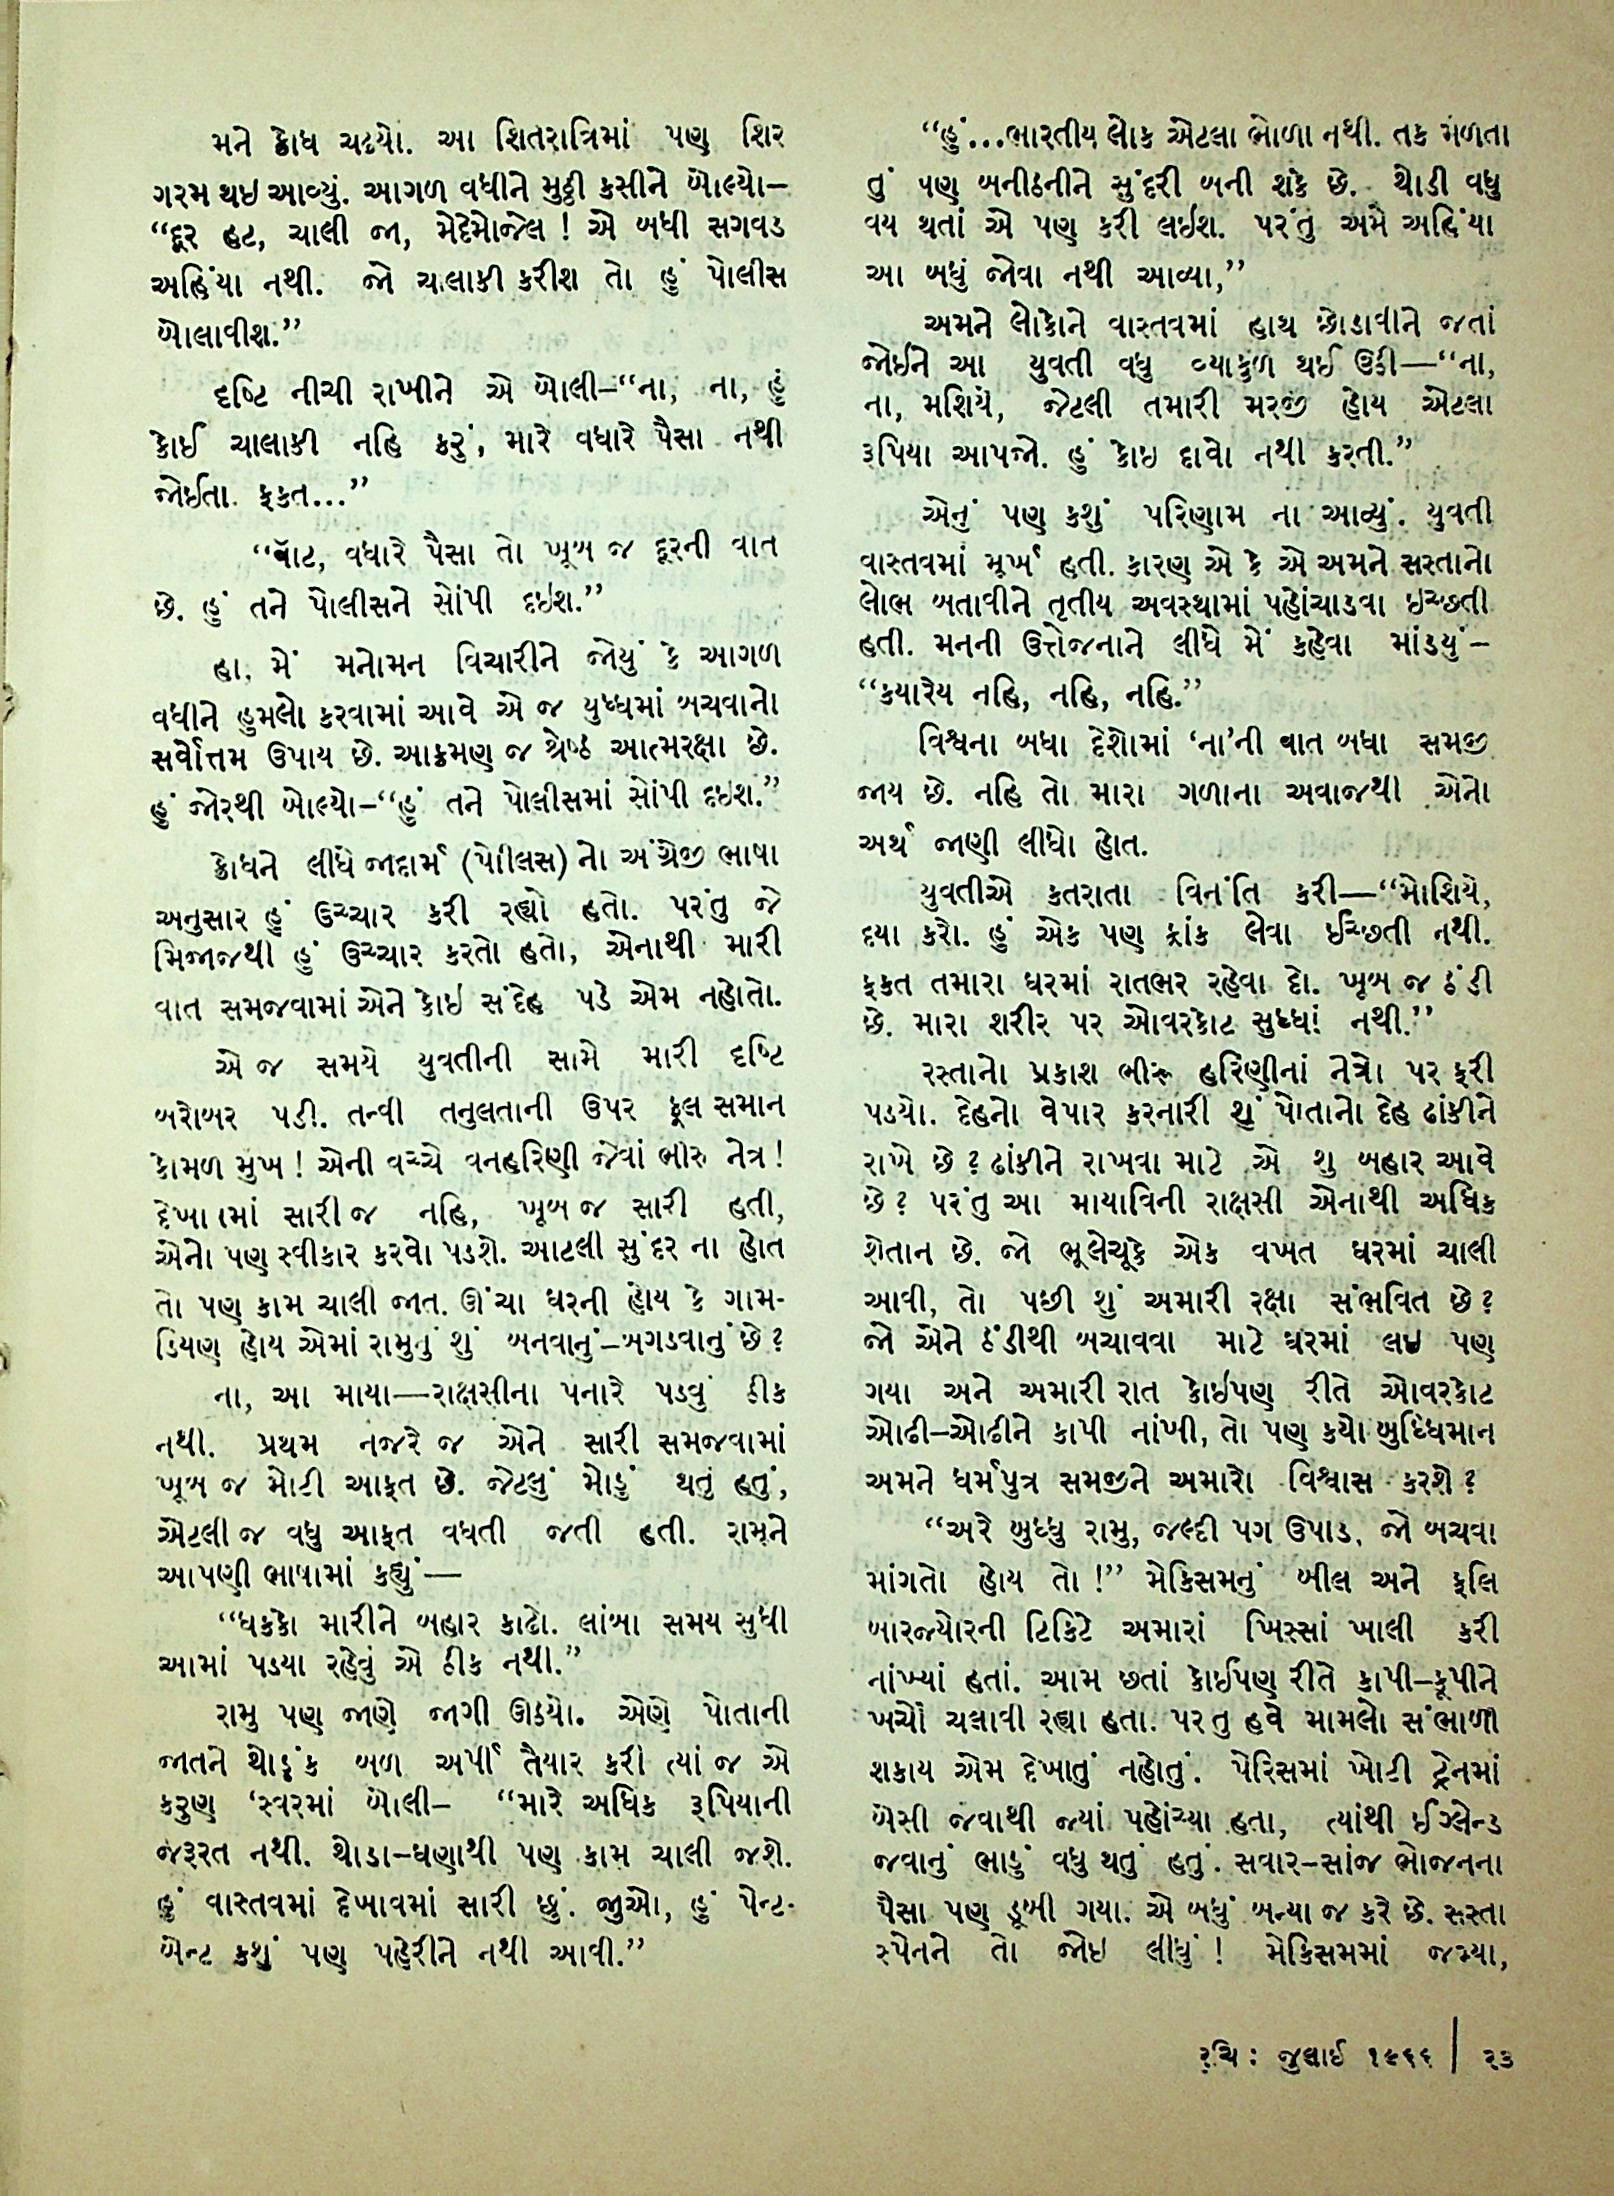 મને ક્રોધ ચઢયો. આ શિતરાત્રિમાં પણ શિર
ગરમ થઇ આવ્યું. આગળ વધીને મુઠ્ઠી કસીને બોલ્યો–
“દૂર હટ, ચાલી જા, મેદેમોજેલ ! એ બધી સગવડ
અહિંયા નથી. જો ચાલાકી કરીશ તો હું પોલીસ
બોલાવીશ.”
દૃષ્ટિ નીચી રાખીને એ બોલી–“ના, ના, હું
કોઈ ચાલાકી નહિ કરું, મારે વધારે પૈસા નથી
જોઈતા. ફકત...”
“વૉટ, વધારે પૈસા તો ખૂબ જ દૂરની વાત
છે. હું તને પોલીસને સોંપી દઇશ.”
હા, મેં મનોમન વિચારીને જોયું કે આગળ
વધીને હુમલો કરવામાં આવે એ જ યુધ્ધમાં બચવાનો
સર્વોત્તમ ઉપાય છે. આક્રમણ જ શ્રેષ્ઠ આત્મરક્ષા છે.
હું જોરથી બોલ્યો–“હું તને પોલીસમાં સોંપી દઇશ.”
ક્રોધને લીધે જાદાર્મ (પોીલિસ) નો અંગ્રેજી ભાષા
અનુસાર હું ઉચ્ચાર કરી રહ્યો હતો. પરંતુ જે
મિજાજથી હું ઉચ્ચાર કરતો હતો, એનાથી મારી
વાત સમજવામાં એને કોઇ સંદેહ પડે એમ નહોતો.
એ જ સમયે યુવતીની સામે મારી દૃષ્ટિ
બરોબર પડી. તન્વી તનુલતાની ઉપર ફૂલ સમાન
કોમળ મુખ ! એની વચ્ચે વનહરિણી જેવાં ભીરુ નેત્ર !
દેખાામાં સારી જ નહિ, ખૂબ જ સારી હતી,
એનો પણ સ્વીકાર કરવો પડશે. આટલી સુંદર ના હોત
તો પણ કામ ચાલી જાત. ઊંચા ઘરની હોય કે ગામ-
ડિયણ હોય એમાં રામુનું શું બનવાનું–બગડવાનું છે ?
ના, આ માયા—રાક્ષસીના પનારે પડવું ઠીક
નથી. પ્રથમ નજરે જ એને સારી સમજવામાં
ખૂબ જ મોટી આફત છે. જેટલું મોડું થતું હતું,
એટલી જ વધુ આફત વધતી જતી હતી. રામુને
આપણી ભાષામાં કહ્યું—
“ધકકો મારીને બહાર કાઢો. લાંબા સમય સુધી
આમાં પડયા રહેવું એ ઠીક નથી.”
રામુ પણ જાણે જાગી ઊઠયો. એણે પોતાની
જાતને થોડુંક બળ અર્પી તૈયાર કરી ત્યાં જ એ
કરુણ ‘સ્વરમાં બોલી– “મારે અધિક રૂપિયાની
જરૂરત નથી. થોડા–ઘણાથી પણ કામ ચાલી જશે.
હું વાસ્તવમાં દેખાવમાં સારી છું. જુઓ, હું પેન્ટ-
બેન્ટ કશું પણ પહેરીને નથી આવી.”
“હું...ભારતીય લોક એટલા ભોળા નથી. તક મળતા
તું પણ બનીઠનીને સુંદરી બની શકે છે. થોડી વધુ
વય થતાં એ પણ કરી લઈશ. પરંતુ અમે અહિંયા
આ બધું જોવા નથી આવ્યા,”
અમને લોકોને વાસ્તવમાં હાથ છોડાવીને જતાં
જોઇને આ યુવતી વધુ વ્યાકુળ થઈ ઉઠી—“ના,
ના, મશિયે, જેટલી તમારી મરજી હોય એટલા
રૂપિયા આપજો. હું કોઇ દાવો નથી કરતી.”
એનું પણ કશું પરિણામ ના આવ્યું. યુવતી
વાસ્તવમાં મૂર્ખ હતી. કારણ એ કે એ અમને સસ્તાનો
લોભ બતાવીને તૃતીય અવસ્થામાં પહોંચાડવા ઇચ્છતી
હતી. મનની ઉત્તેજનાને લીધે મેં કહેવા માંડયું–
“કયારેય નહિ, નહિ, નહિ.”
વિશ્વના બધા દેશોમાં ‘ના’ની વાત બધા સમજી
જાય છે. નહિ તો મારા ગળાના અવાજથી એનો
અર્થ જાણી લીધો હોત.
યુવતીએ કતરાતા વિનંતિ કરી—“મોશિયે,
દયા કરો. હું એક પણ ફ્રાંક લેવા ઈચ્છતી નથી.
ફકત તમારા ઘરમાં રાતભર રહેવા દો. ખૂબ જ ઠંડી
છે. મારા શરીર પર ઓવરકોટ સુધ્ધાં નથી.”
રસ્તાનો પ્રકાશ ભીરુ હરિણીનાં નેત્રો પર ફરી
પડયો. દેહનો વેપાર કરનારી શું પોતાનો દેહ ઢાંકીને
રાખે છે ? ઢાંકીને રાખવા માટે એ શુ બહાર આવે
છે ? પરંતુ આ માયાવિની રાક્ષસી એનાથી અધિક
શેતાન છે. જો ભૂલેચૂકે એક વખત ઘરમાં ચાલી
આવી, તો પછી શું અમારી રક્ષા સંભવિત છે ?
જો એને ઠંડીથી બચાવવા માટે ઘરમાં લઇ પણ
ગયા અને અમારી રાત કોઇપણ રીતે ઓવરકોટ
ઓઢી–ઓઢીને કાપી નાંખી, તો પણ કયો બુધ્ધિમાન
અમને ધર્મપુત્ર સમજીને અમારો વિશ્વાસ કરશે ?
“અરે બુધ્ધુ રામુ, જલ્દી પગ ઉપાડ, જો બચવા
માંગતો હોય તો !” મેકિસમનું બીલ અને ફૂલિ
બારજ્યોરની ટિકિટે અમારાં ખિસ્સાં ખાલી કરી
નાંખ્યાં હતાં. આમ છતાં કોઈપણ રીતે કાપી–કૂપીને
ખર્ચો ચલાવી રહ્યા હતા. પરતુ હવે મામલો સંભાળી
શકાય એમ દેખાતું નહોતું. પેરિસમાં ખોટી ટ્રેનમાં
બેસી જવાથી જ્યાં પહોંચ્યા હતા, ત્યાંથી ઈગ્લેન્ડ
જવાનું ભાડું વધુ થતું હતું. સવાર–સાંજ ભોજનના
પૈસા પણ ડૂબી ગયા. એ બધું બન્યા જ કરે છે. સસ્તા
સ્પેનને તો જોઇ લીધું ! મેકિસમમાં જમ્યા,
રુચિ : જુલાઈ ૧૯૬૬ | ૨૩